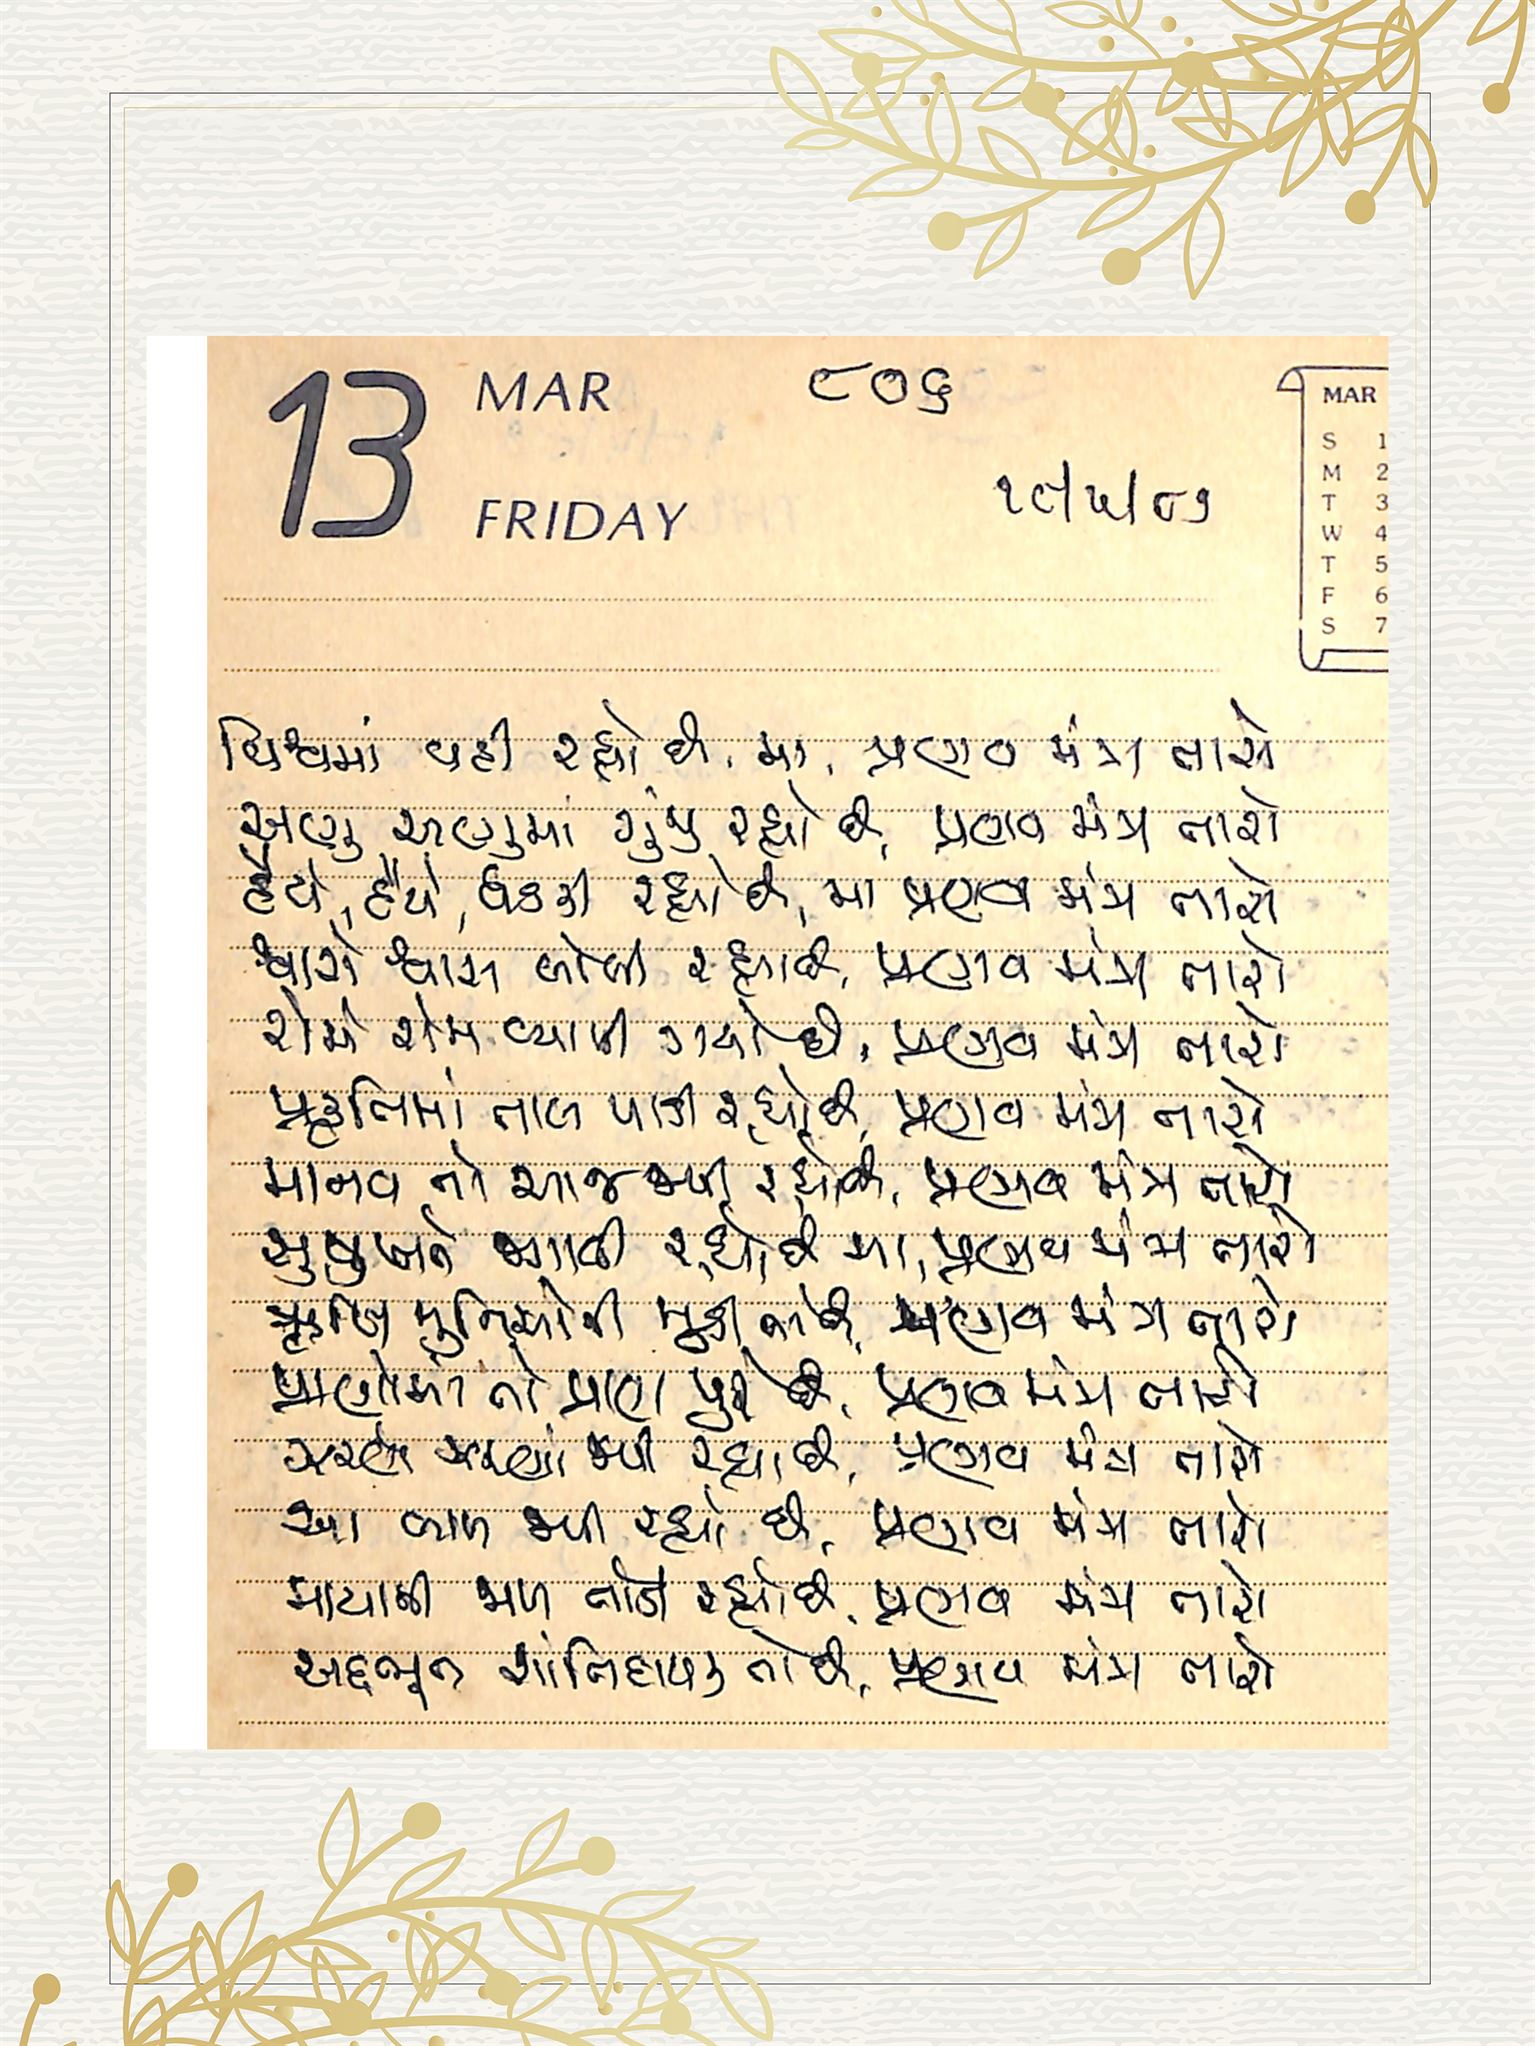 13 MAR ૮૦૬ MAR
FRIDAY ૨૯/૫/૮૧
S 1
M 2
T 3
W 4
T 5
F 6
S 7
વિશ્વમાં વહી રહ્યો છે, મા, પ્રણવ મંત્ર તારો
અણુ અણુમાં ગુંજી રહ્યો છે, પ્રણવ મંત્ર તારો
હૈયે, હૈયે, ધડકી રહ્યો છે, મા પ્રણવ મંત્ર તારો
શ્વાસે શ્વાસ બોલી રહ્યા છે, પ્રણવ મંત્ર તારો
રોમે રોમ વ્યાપી ગયો છે, પ્રણવ મંત્ર તારો
પ્રકૃતિમાં તાલ પાડી રહ્યો છે, પ્રણવ મંત્ર તારો
માનવ તો આજ જપી રહ્યો છે, પ્રણવ મંત્ર તારો
જગાડી રહ્યો છે મા, પ્રણવ મંત્ર તારો
ઋષિ મુનિઓની મૂડી છે, પ્રણવ મંત્ર તારો
પ્રાણોમાં તો પ્રાણ પુરે છે, પ્રણવ મંત્ર તારો
જપી રહ્યા છે, પ્રણવ મંત્ર તારો
આ જપી રહ્યો છે, પ્રણવ મંત્ર તારો
માયાની જાળ તોડી રહ્યો છે, પ્રણવ મંત્ર તારો
અદ્દભૂત શાંતિદાયક તો છે, પ્રણવ મંત્ર તારો